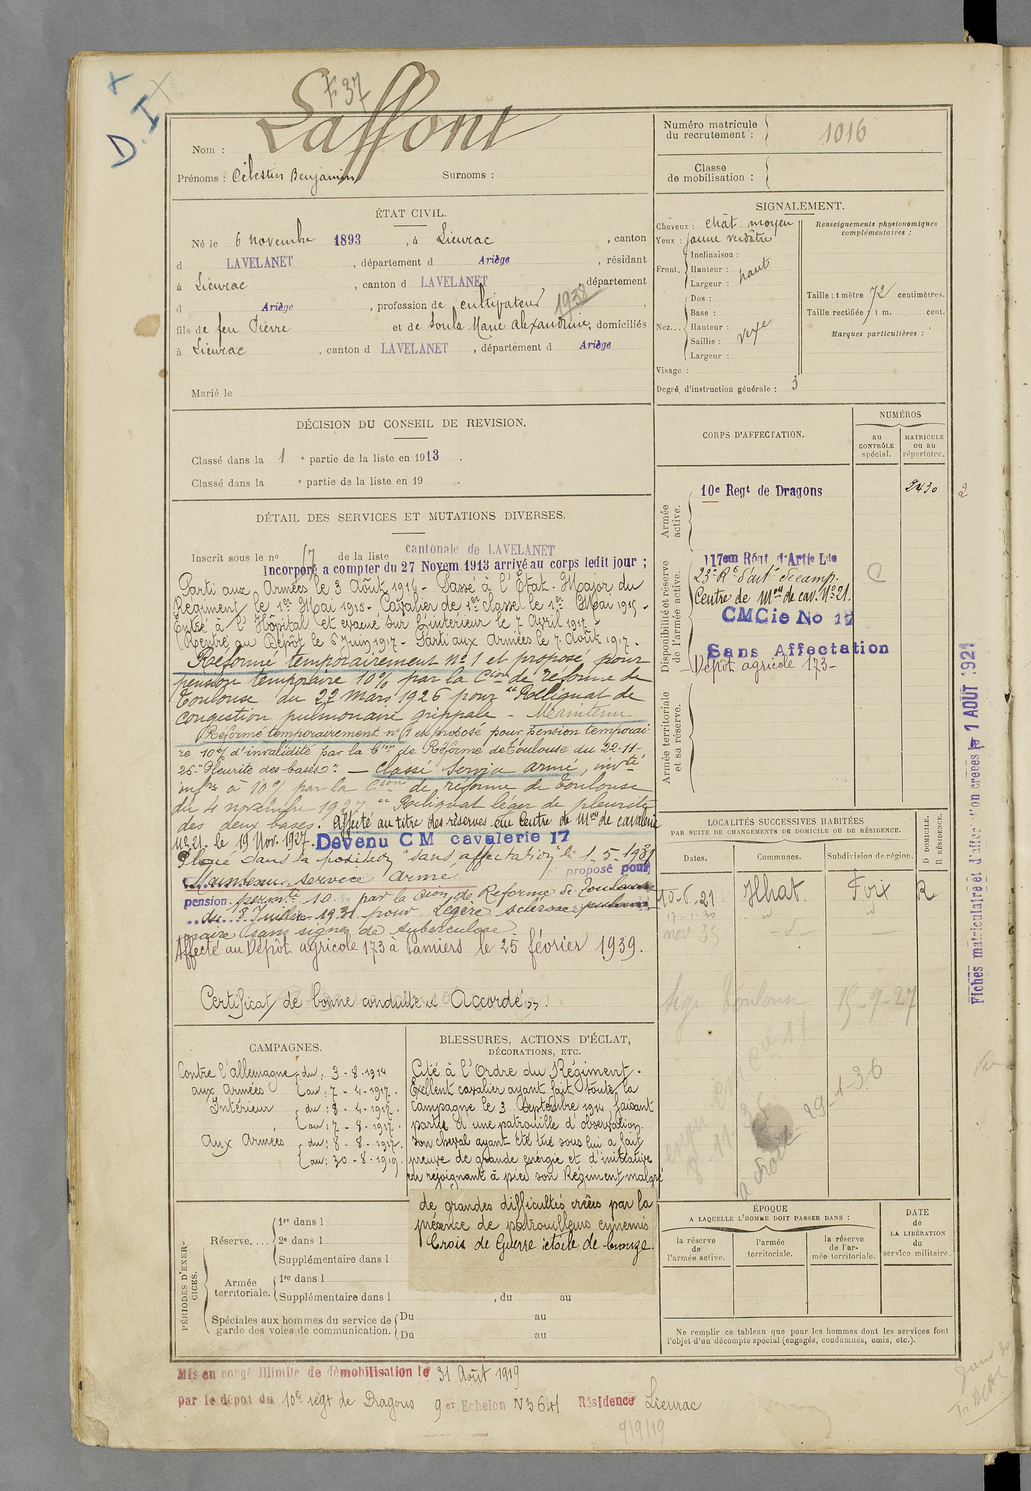 F 37
D. I
Nom : Laffont
Prénoms : Célestin Benjamin Surnoms :
Numéro matricule du recrutement : 1016
Classe de mobilisation :
ÉTAT CIVIL.
Né le 6 novembre 1893, à Lieurac, canton
d LAVELANET, département d Ariège, résidant
à Lieurac, canton d LAVELANET, département
d Ariège, profession de cultivateur 1938,
fils de feu Pierre et de Soula Marie Alexandrine, domiciliés
à Lieurac, canton d LAVELANET, département d Ariège
Marié le
SIGNALEMENT.
Cheveux : chât. moyen
Yeux : jaune verdâtre
Front. Inclinaison :
Hauteur : haut
Largeur :
Nez... Dos :
Base :
Hauteur :
Saillie : vexe
Largeur :
Visage :
Degré d'instruction générale : 3
Renseignements physionomiques complémentaires :
Taille : 1 mètre 72 centimètres.
Taille rectifiée : 1 m. cent.
Marques particulières :
DÉCISION DU CONSEIL DE REVISION.
Classé dans la 1e partie de la liste en 1913.
Classé dans la e partie de la liste en 19 .
DÉTAIL DES SERVICES ET MUTATIONS DIVERSES.
Inscrit sous le no 17 de la liste cantonale de LAVELANET
Incorporé a compter du 27 Novem 1913 arrivé au corps ledit jour ;
Parti aux Armées le 3 Août 1914 - Passé à l'État-Major du
Régiment le 1er Mai 1915 - Cavalier de 1re classe le 1er Mai 1915 -
Entré à l'Hôpital et évacué sur l'intérieur le 7 Avril 1917 -
Rentré au Dépôt le 6 Juin 1917 - Parti aux Armées le 7 Août 1917 -
Réformé temporairement no 1 et proposé pour
pension temporaire 10% par la Cion de réforme de
Toulouse du 22 Mars 1926 pour "Reliquat de
congestion pulmonaire grippale - Maintenu
Réformé temporairement no 1 et proposé pour pension temporai-
re 10% d'invalidité par la Con de Réforme de Toulouse du 22-11-
26 "Pleurite des bases". - Classé Service armé, invté
infre à 10% par la Cion de réforme de Toulouse
du 4 novembre 1927 "Reliquat léger de pleurite
des deux bases. Affecté au titre des réserves au Centre de Mon de cavalerie
No 21. le 19 Nov. 1927. Devenu CM cavalerie 17
Placé dans la position "sans affectation" le 1-5-1931
Maintenu service armé proposé pour
pension permte 10 par la Cion de Réforme de Toulouse
du 8 Juillet 1931 pour légère sclérose pulmo-
naire sans signes de tuberculose.
Affecté au Dépôt agricole 173 à Pamiers le 25 février 1939.
Certificat de bonne conduite "Accordé".
CORPS D'AFFECTATION.
NUMÉROS
au CONTRÔLE spécial.
MATRICULE ou au répertoire.
Armée active.
10e Regt de Dragons 2430
Disponibilité et réserve de l'armée active.
117em Régt d'Artie Lde
23e Rt d'Artie de camp.
Centre de Mon de cav. No 21.
CMCie No 17
Sans Affectation
Dépôt agricole 173 -
Armée territoriale et sa réserve.
LOCALITÉS SUCCESSIVES HABITÉES
PAR SUITE DE CHANGEMENTS DE DOMICILE OU DE RÉSIDENCE.
Dates. Communes. Subdivision de région. D DOMICILE. R RÉSIDENCE.
10-6-21 Ilhat Foix R
15-9-27
29-1-36
CAMPAGNES.
Contre l'allemagne du : 3 - 8 - 1914
aux Armées au : 7 - 4 - 1917.
Intérieur du : 8 - 4 - 1917.
au : 7 - 8 - 1917.
Aux Armées du : 8 - 8 - 1917.
au : 30 - 8 - 1919.
BLESSURES, ACTIONS D'ÉCLAT,
DÉCORATIONS, ETC.
Cité à l'Ordre du Régiment.
Excellent cavalier ayant fait toute la
campagne le 3 Septembre 1914, faisant
partie d'une patrouille d'observation.
Son cheval ayant été tué sous lui a fait
preuve de grande énergie et d'initiative
en rejoignant à pied son Régiment malgré
de grandes difficultés créées par la
présence de patrouilleurs ennemis.
Croix de Guerre étoile de bronze.
PÉRIODES D'EXERCICES.
Réserve.... 1re dans l
2e dans l
Supplémentaire dans l
Armée territoriale. 1re dans l
Supplémentaire dans l , du au
Spéciales aux hommes du service de garde des voies de communication. Du au
Du au
ÉPOQUE
A LAQUELLE L'HOMME DOIT PASSER DANS :
la réserve de l'armée active.
l'armée territoriale.
la réserve de l'armée territoriale.
DATE DE LA LIBÉRATION du service militaire.
Ne remplir ce tableau que pour les hommes dont les services font
l'objet d'un décompte spécial (engagés, condamnés, omis, etc.).
Mis en congé illimité de démobilisation le 31 Août 1919
par le dépôt du 10e régt de Dragons 9em Echelon No 3641 Résidence Lieurac
9/9/19
Fiches matriculaire et d'affectation créées le 1 AOUT 1921